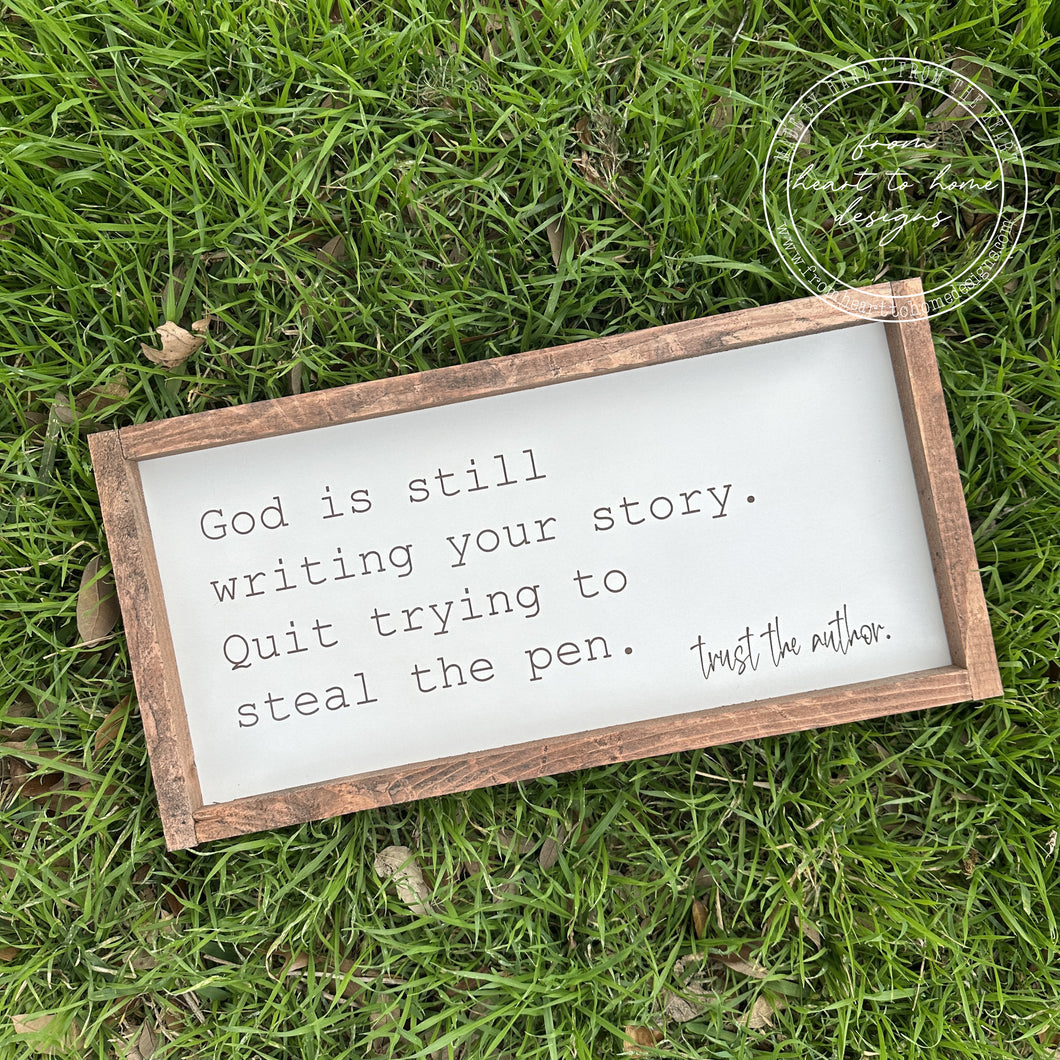 God is still
writing your story.
Quit trying to
steal the pen.
trust the author.
from
heart to home
designs
www.fromhearttohomedesigns.com